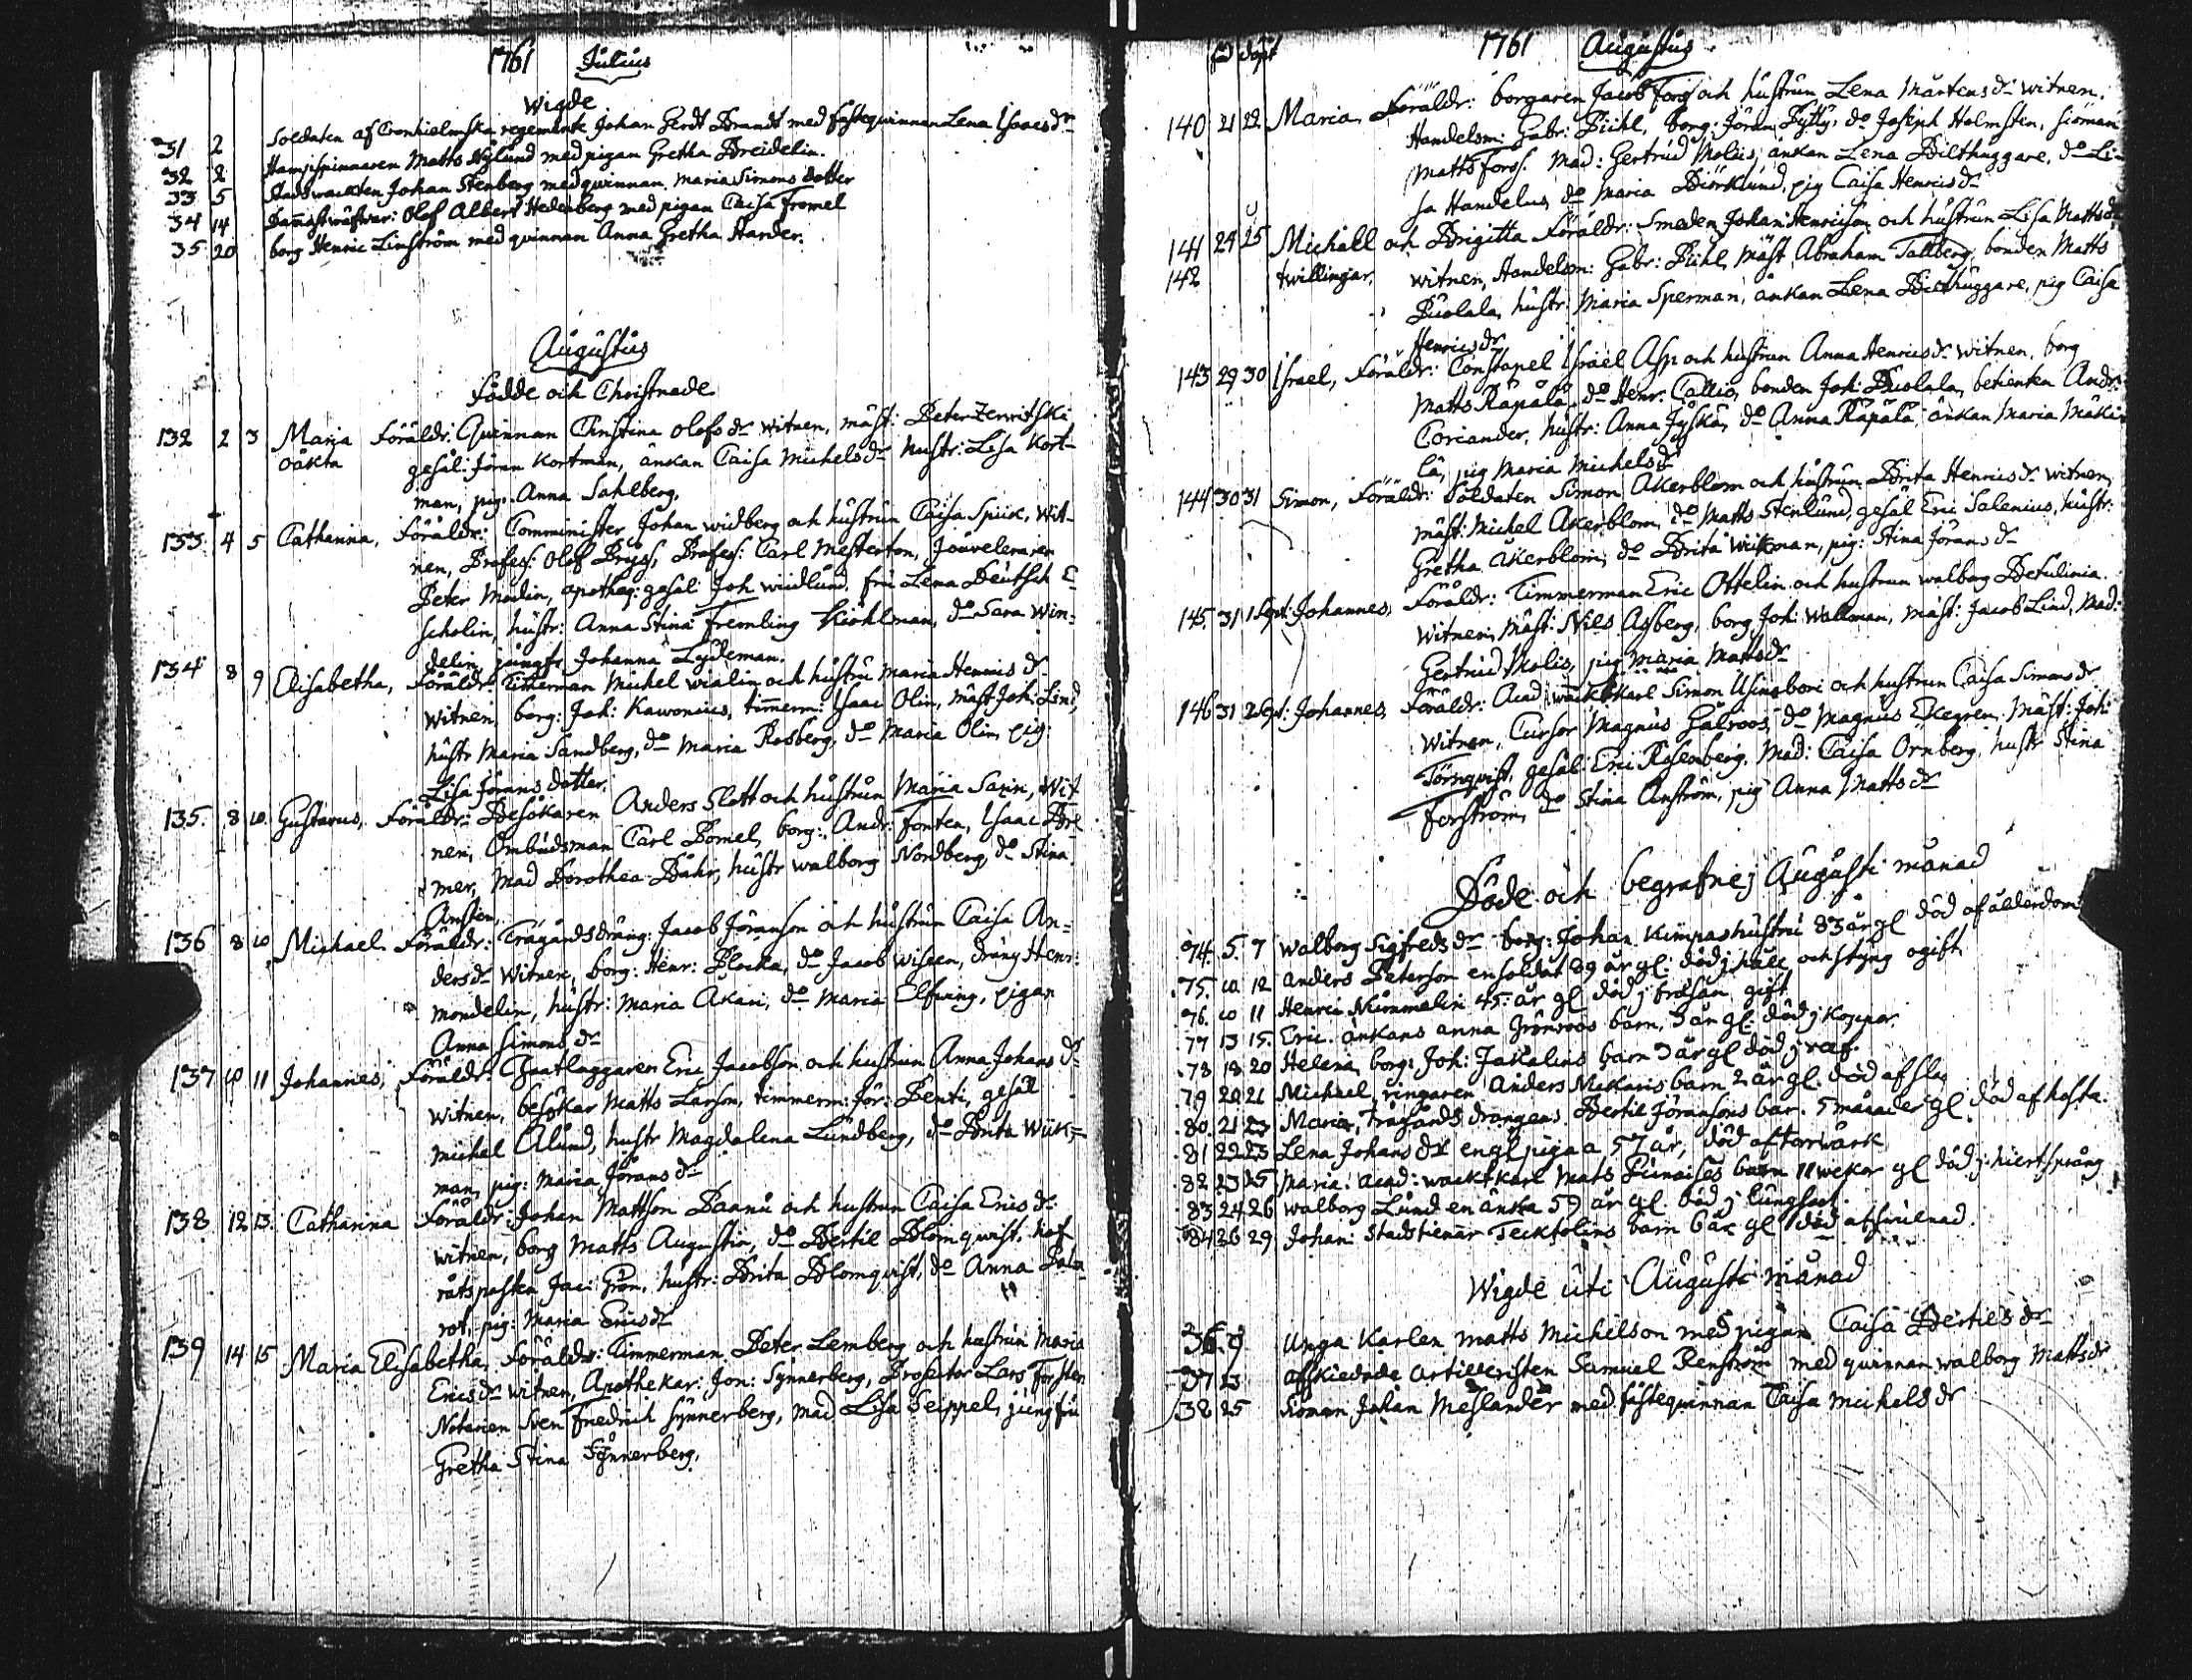 1761 Julius
Wigde
31 2 Soldaten af Cronhielmska regemente Johan Gerdt Brandt med fästequinnan Lena Isacsdr
32 2 Hampspinnaren Matts Nylund med pigan Gretha Breidelin.
33 5 Stadswackten Johan Stenberg med quinnan Maria Simons dotter
34 14 Olof Albert Hedenberg med pigan Caisa Fromel
35 20 borg Henric Linström med quinnan Anna Gretha Harder.
Augustus
Födde och Christnade
132 2 3 Maria Föräldr: Quinnan Christina Olofs dr witnen, mäst: Peter Zerwitski
oäkta gesäl: Jöran Kortman, änkan Caisa Michelsdr hustr: Lisa Kort-
man, pig. Anna Sahlberg.
133 4 5 Catharina, Föräldr: Comminister Johan widberg och hustrun Caisa Spiik, wit-
nen, Profess: Olof Pryss, Profess: Carl Mesterton, Jouveleraren
Peter Modin, apotheq: gesäl Joh widlund, fru Lena Deutsch
scholin, hustr: Anna Stina Fremling Kiöhlman, do Sara Win-
delin, jungfr Johanna Lydeman.
134 8 9 Elisabetha, Föräldr: Timerman Michel wialin och hustru Maria Henrics dr
witnen, borg: Joh: Kawonius, timerm: Isaac Olin, mäst Joh: Lind,
hustr Maria Sandberg, do Maria Rosberg, do Maria Olin, pig:
Lisa Jörans dotter.
135. 8 10 Gustavus, Föräldr: Besökaren Anders Slott och hustrun Maria Saxin, wit
nen, Ombudsman Carl Bomel, borg: Andr: Fonten, Isaac Bre
mer, Mad Dorothea Bähr, hustr walborg Nordberg, do Stina
Ansten.
136 8 10 Michael Föräldr: Trägårdsdräng: Jacob Jöranson och hustrun Caisa An-
dersdr Witnen, borg: Henr: Plocka, do Jacob Wissen, dräng Henr:
Mondelin, hustr: Maria Akari, do Maria Elfving, pigan
Anna Simons dr
137 10 11 Johannes, Föräldr: Eric Jacobson och hustrun Anna Johans dr
witnen, besökar Matts Larson, timmerm: Jör: Penti, gesäl
Michel Alund, hustr Magdalena Lundberg, do Brita Wiik-
man, pig: Maria Jörans dr
138 12 13. Catharina Föräldr: Johan Mattson Paanu och hustrun Caisa Erics dr
witnen, borg Matts Augustin, do Bertil Blomqwist, hof
råts Jac: Grön, hustr: Brita Blomqvist, do Anna Pala-
rot, pig: Maria Ericsdr
139 14 15 Maria Elisabetha, Föräldr: Timmerman Peter Lemberg och hustrun Maria
Ericsdr witnen, Apothekar: Jon: Synnerberg, Prosector Lars Forsten
Notarien Sven Friedrich Synnerberg, Mad Lisa Seippel, jungfru
Gretha Stina Synnerberg.
1761 Augustus
140 21 22 Maria, Föräldr: borgaren Jacob Fors och hustrun Lena Mårtens dr witnen.
Handelsm: Gabr: Pichl, borg: Jöran Pytty, do Joseph Holmsten, siöman
Matts Forss. Mad: Gertrud Molis, änkan Lena Bilthuggare, do Li-
sa Handelus, do Maria Biörklund, pig Caisa Henricsdr
141 24 25 Michäll och Brigitta Föräldr: Smeden Johan Henricson och hustrun Lisa Mattsdr
142 twillingar. witnen, Handelsm: Gabr: Pichl, Mäst Abraham Tallberg, bonden Matts
Puolala, hustr: Maria Sperman, änkan Lena Bilthuggare, pig Caisa
Henricsdr,
143 29 30 Israel, Föräldr: Constapel Israel Asp och hustrun Anna Henricsdr witnen, borg
Matts Räpälä, do Henr: Callio, bonden Joh: Puolala, betienten Andr:
Coriander, hustr: Anna Jyskä, do Anna Räpälä änkan Maria Mäki-
lä, pig Maria Michelsdr
144 30 31 Simon, Föräldr: Soldaten Simon Akerblom och hustrun Brita Henricsdr witnen,
mäst: Michel Akerblom, do Matts Stenlund, gesäl Eric Salenius, hustr:
Gretha Akerblom, do Brita Wikman, pig: Stina Jörans dr
145. 31 1 Sept: Johannes, Föräldr: Timmerman Eric Ottelin och hustrun walborg Betulinia.
Witnen, Mäst: Nils Asberg, borg Joh: Wallman, mäst: Jacob Lind, Mad:
Gertrud Molis, pig Maria Mattsdr
146 31 2 Sept: Johannes, Föräldr: Acad: wacktkarl Simon Usinsbori och hustrun Caisa Simonsdr
Witnen, Cursor Magnus Galroos, do Magnus Ekegren. Mäst: Joh:
Törnqvist, gesäl: Eric Rosenberg, Mad: Caisa Örnberg, hustr Stina
Forström, do Stina Anström, pig Anna Matts dr
Döde och begrafne j Augusti månad
74. 5. 7 Walborg Sigfreds dr borg: Johan Kimpas hustru 83 år gl död af ålderdom
75. 10 12 Anders Peterson en soldat 89 år gl: död j håll och styng ogift
76. 10 11 Henric Nummelin 45. år gl död j frosan gift
77 13 15. Eric. änkans anna Grönroos barn, 3 år gl. död j Koppor.
78 18 20 Helena, borg: Joh: Jakalins barn 3 år gl död j
79 20 21 Michael, ringaren Anders Mikaris barn 2 år gl. död af slag
80. 21 23 Maria, trägårds drängens Bertil Jöransons bar. 5 månader gl. död af hosta.
81 22 23 Lena Johans dr en gl piga a 57 år, död af torrwärk
82 23 25 Maria. acad: wacktkarl Mats barn 11 wekor gl död j: hiertsprång
83 24 26 Walborg Lund en änka 59 år gl. död j lungsot.
84 26 29 Johan: Stadstienar Tecktolins barn 6 år gl död af swulnad.
Wigde uti Augusti månad
36. 9 Unga Karlen Matts Michelson med pigan Caisa Bertils dr
37 13 afskiedade artilleristen Samuel Renström med quinnan walborg Mattsdr
38 25 Siöman Johan Meslander med fästequinnan Caisa Michels dr